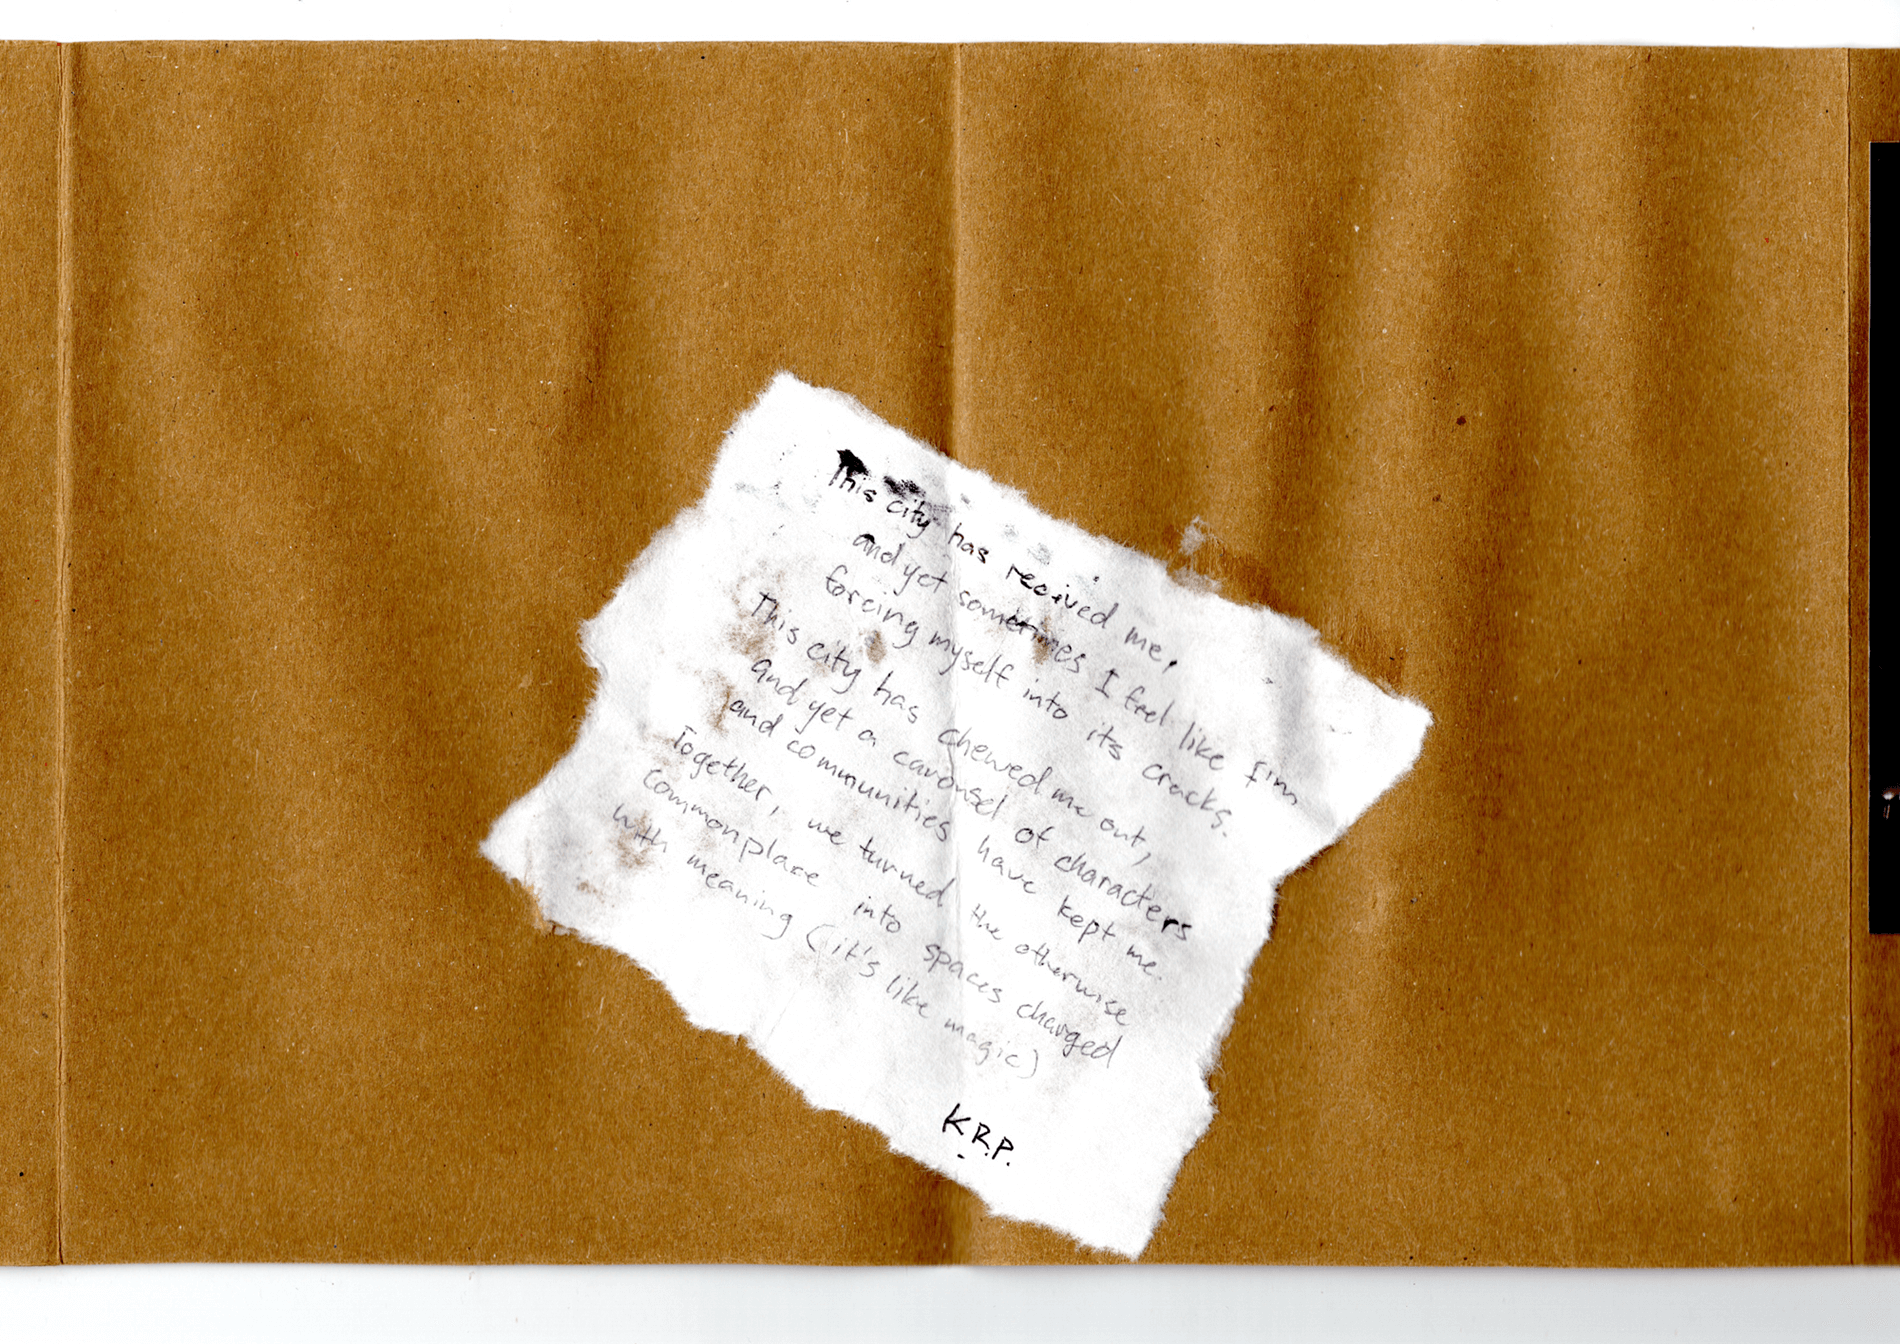 This city has received me,
and yet sometimes I feel like I'm
forcing myself into its cracks.
This city has chewed me out,
and yet a carousel of characters
and communities have kept me.
Together, we turned the otherwise
commonplace into spaces charged
with meaning (it's like magic)
K.R.P.